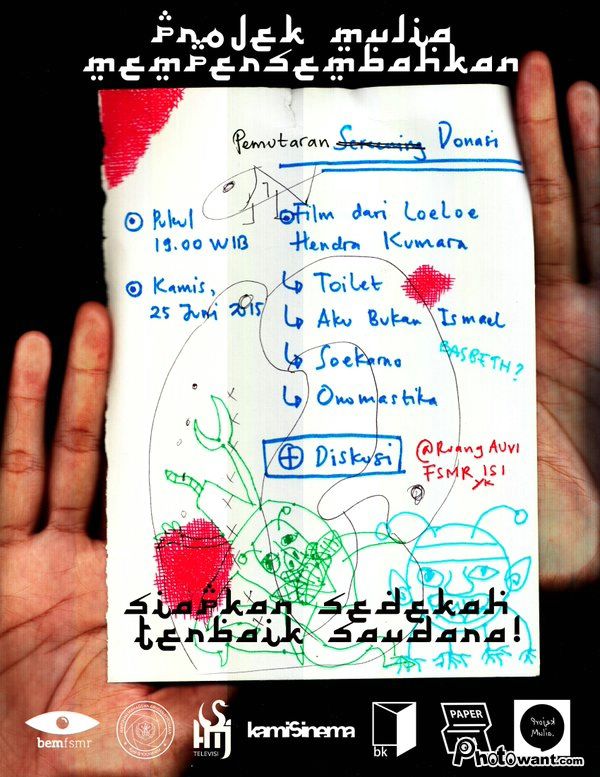 Projek mulia
mempersembahkan
Pemutaran Screening Donasi
Pukul
19.00 WIB
Film dari Loeloe
Hendra Kumara
Kamis,
25 Juni 2015
Toilet
Aku Bukan Ismael
BASBETH?
Soekarno
Onomastika
+ Diskusi
@Ruang AUVI
FSMR ISI
YK
siapkan sedekah
terbaik saudara!
bemfsmr
HMJ
TELEVISI
kamiSinema
bk
PAPER
Projek
Mulia.
Photowant.com